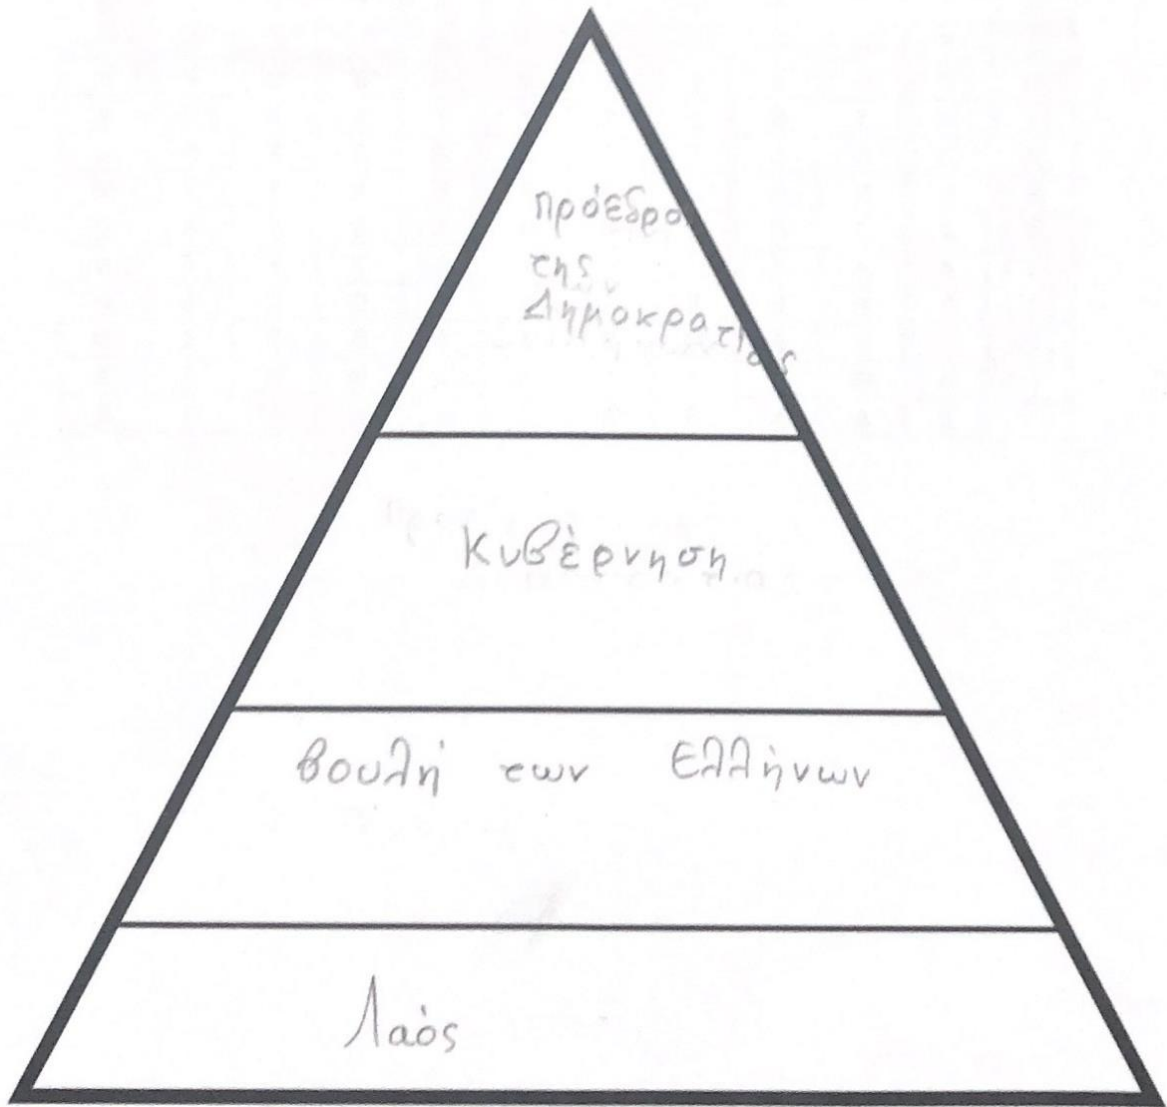 πρόεδρο
της
Δημοκρατίας
Κυβέρνηση
βουλή των Ελλήνων
Λαός